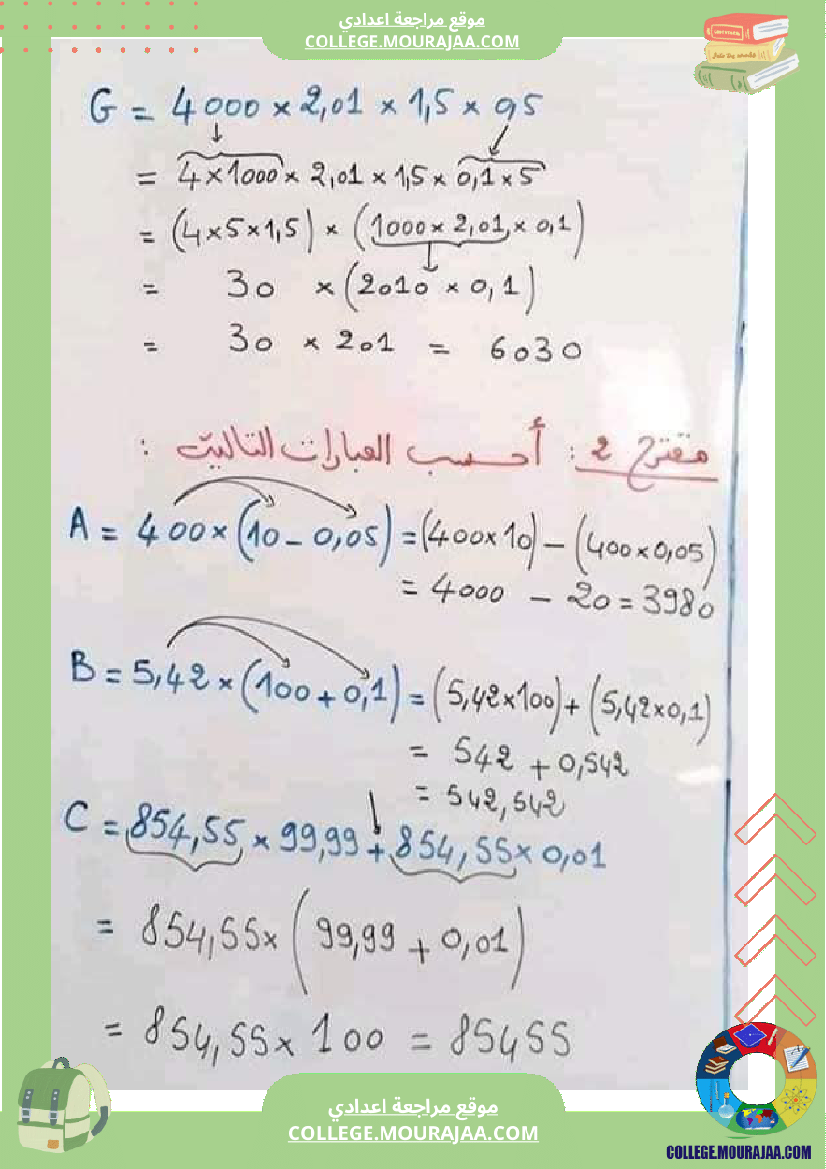 موقع مراجعة اعدادي
COLLEGE.MOURAJAA.COM
G = 4000 × 2,01 × 1,5 × 0,5
= 4×1000 × 2,01 × 1,5 × 0,1×5
= (4×5×1,5) × (1000 × 2,01 × 0,1)
= 30 × (2010 × 0,1)
= 30 × 201 = 6030
مقترح 2 : أحسب العبارات التالية :
A = 400 × (10 - 0,05) = (400×10) - (400×0,05)
= 4000 - 20 = 3980
B = 5,42 × (100 + 0,1) = (5,42×100) + (5,42×0,1)
= 542 + 0,542
= 542,542
C = 854,55 × 99,99 + 854,55 × 0,01
= 854,55 × (99,99 + 0,01)
= 854,55 × 100 = 85455
موقع مراجعة اعدادي
COLLEGE.MOURAJAA.COM
COLLEGE.MOURAJAA.COM